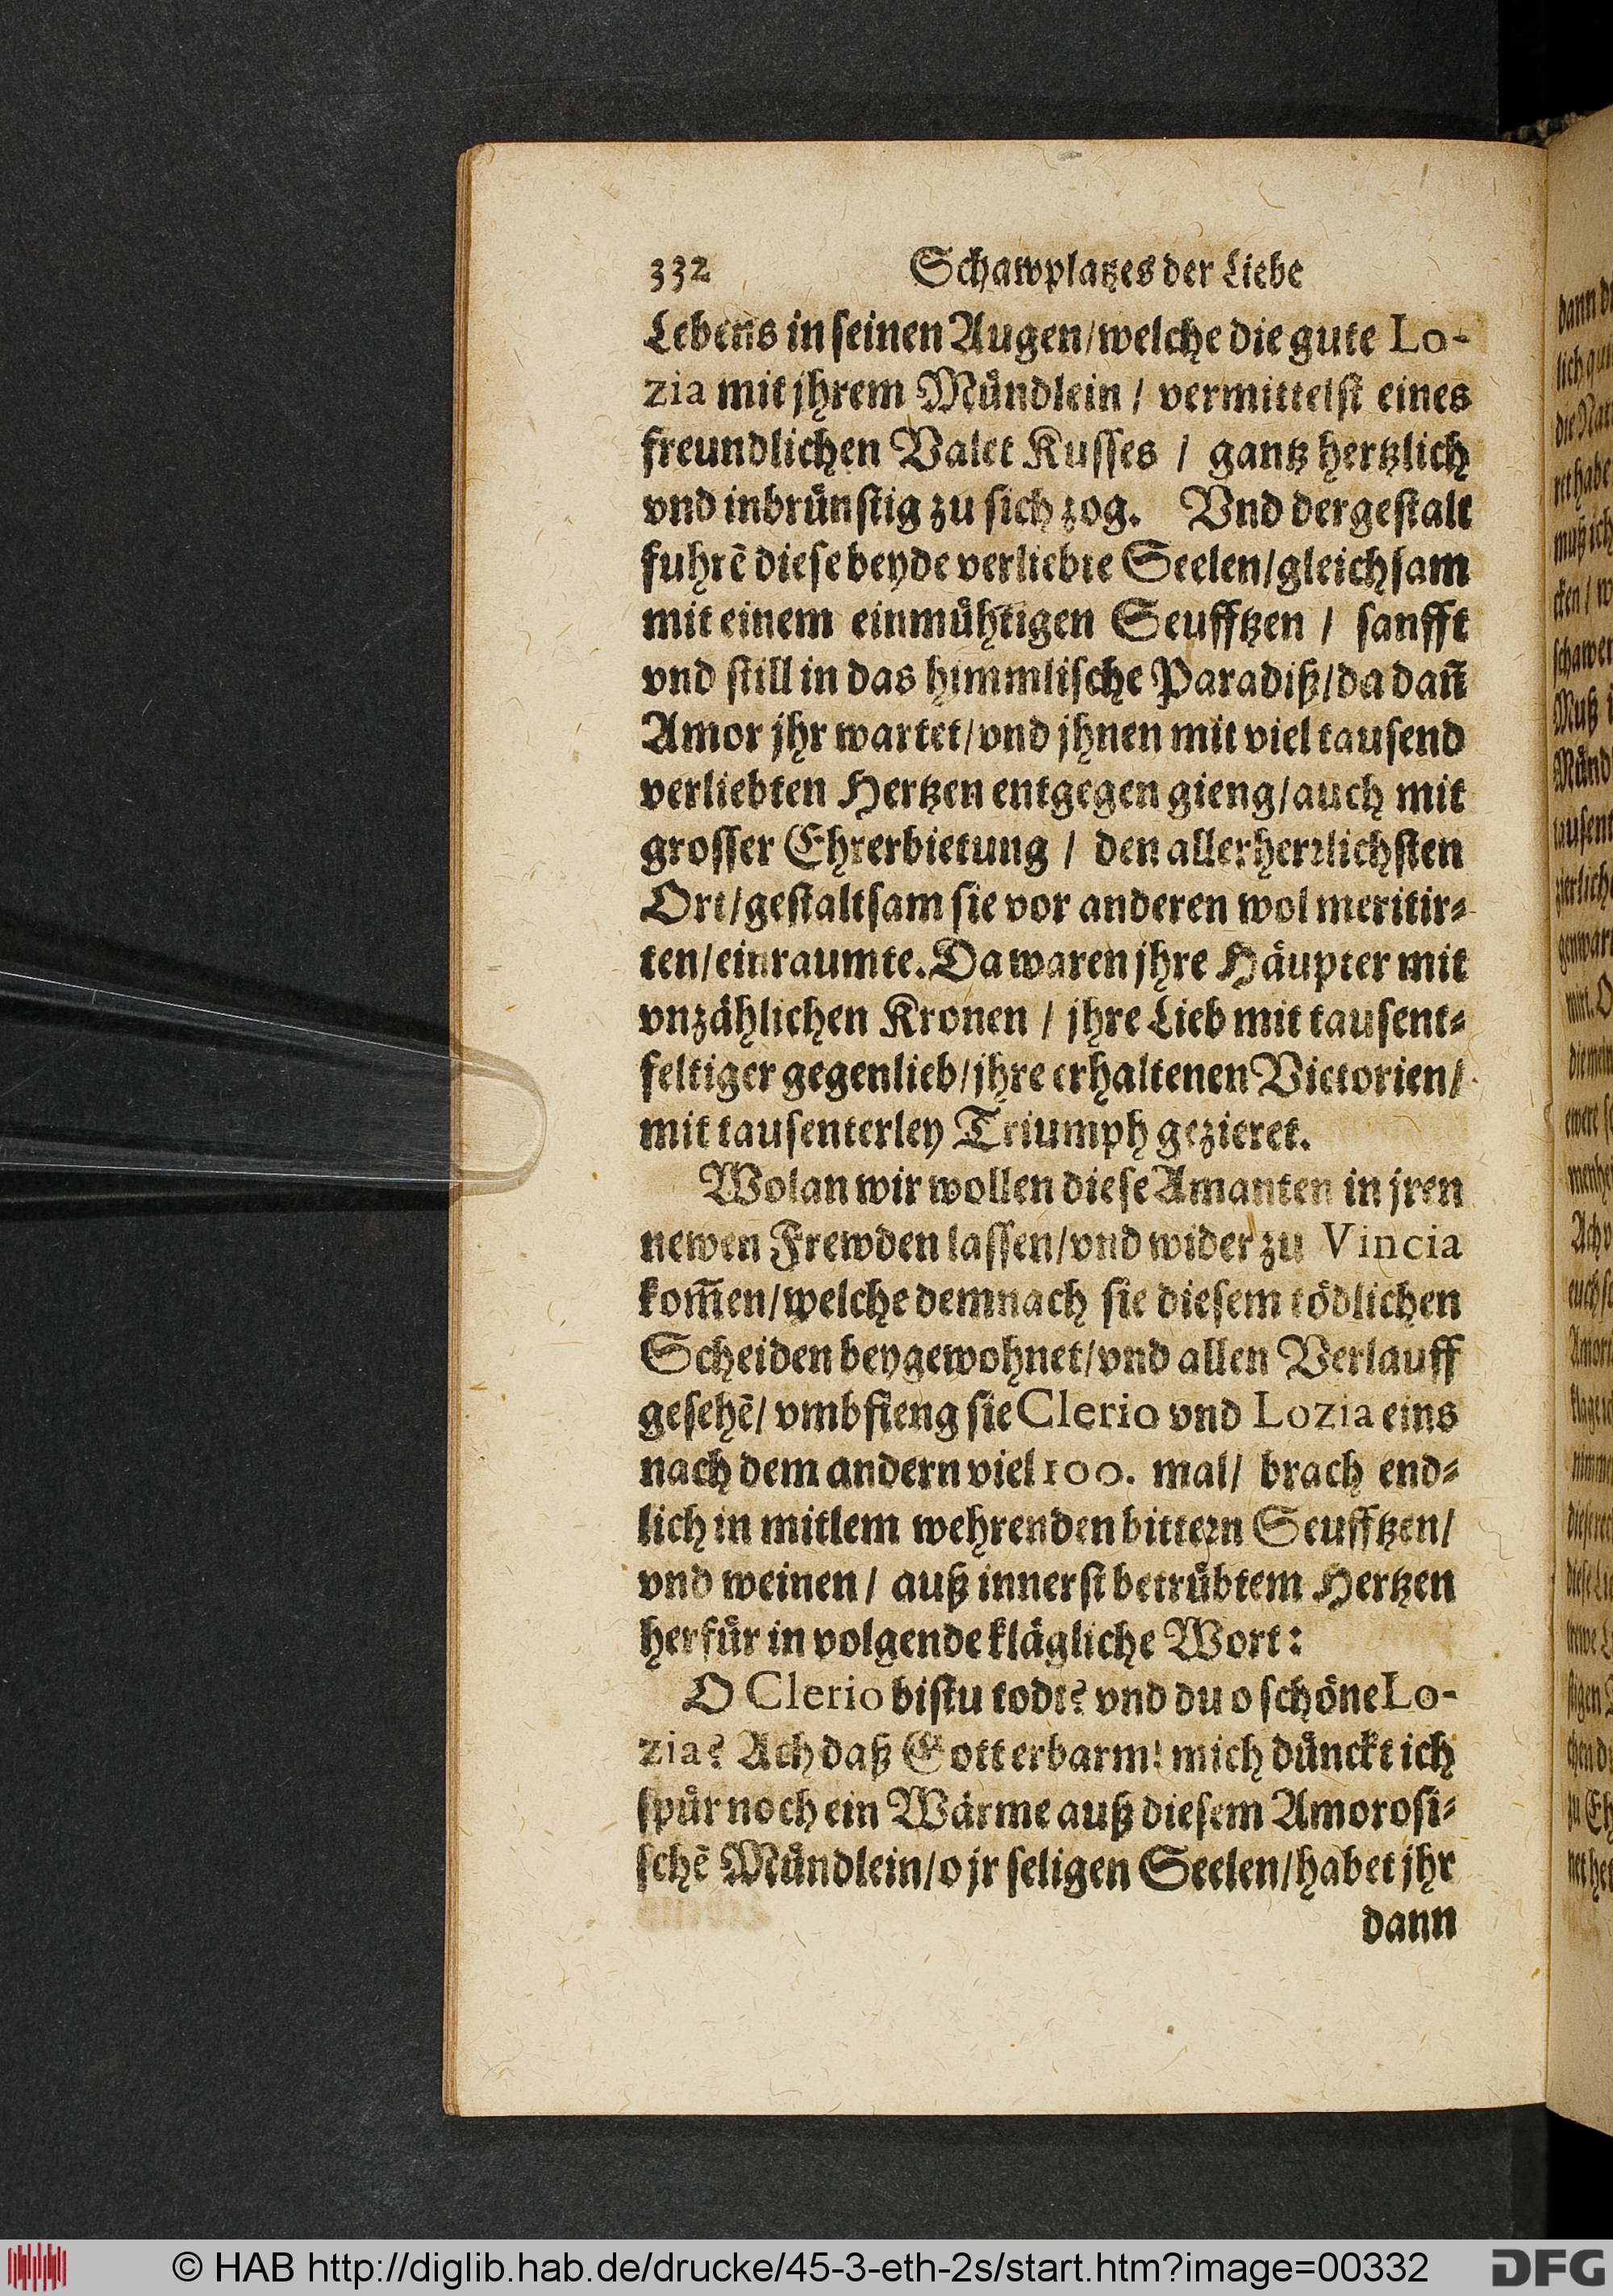 332 Schawplatzes der Liebe
Lebens in seinen Augen/welche die gute Lo-
zia mit jhrem Mündlein / vermittelst eines
freundlichen Valet Kusses / gantz hertzlich
vnd inbrünstig zu sich zog. Vnd dergestalt
fuhrē diese beyde verliebte Seelen/gleichsam
mit einem einmühtigen Seufftzen / sanfft
vnd still in das himmlische Paradiß/da dañ
Amor jhr wartet/vnd jhnen mit viel tausend
verliebten Hertzen entgegen gieng/auch mit
grosser Ehrerbietung / den allerherrlichsten
Ort/gestaltsam sie vor anderen wol meritir-
ten/einraumte. Da waren jhre Häupter mit
vnzählichen Kronen / jhre Lieb mit tausent-
feltiger gegenlieb/jhre erhaltenen Victorien/
mit tausenterley Triumph gezieret.
Wolan wir wollen diese Amanten in jren
newen Frewden lassen/vnd wider zu Vincia
kom̄en/welche demnach sie diesem tödlichen
Scheiden beygewohnet/vnd allen Verlauff
gesehē/ vmbfieng sie Clerio vnd Lozia eins
nach dem andern viel 100. mal/ brach end-
lich in mitlem wehrenden bittern Seufftzen/
vnd weinen/ auß innerst betrübtem Hertzen
herfür in volgende klägliche Wort:
O Clerio bistu todt? vnd du o schöne Lo-
zia? Ach daß Gott erbarm! mich dünckt ich
spür noch ein Wärme auß diesem Amorosi-
schē Mündlein/o jr seligen Seelen/habet jhr
dann
© HAB http://diglib.hab.de/drucke/45-3-eth-2s/start.htm?image=00332
DFG